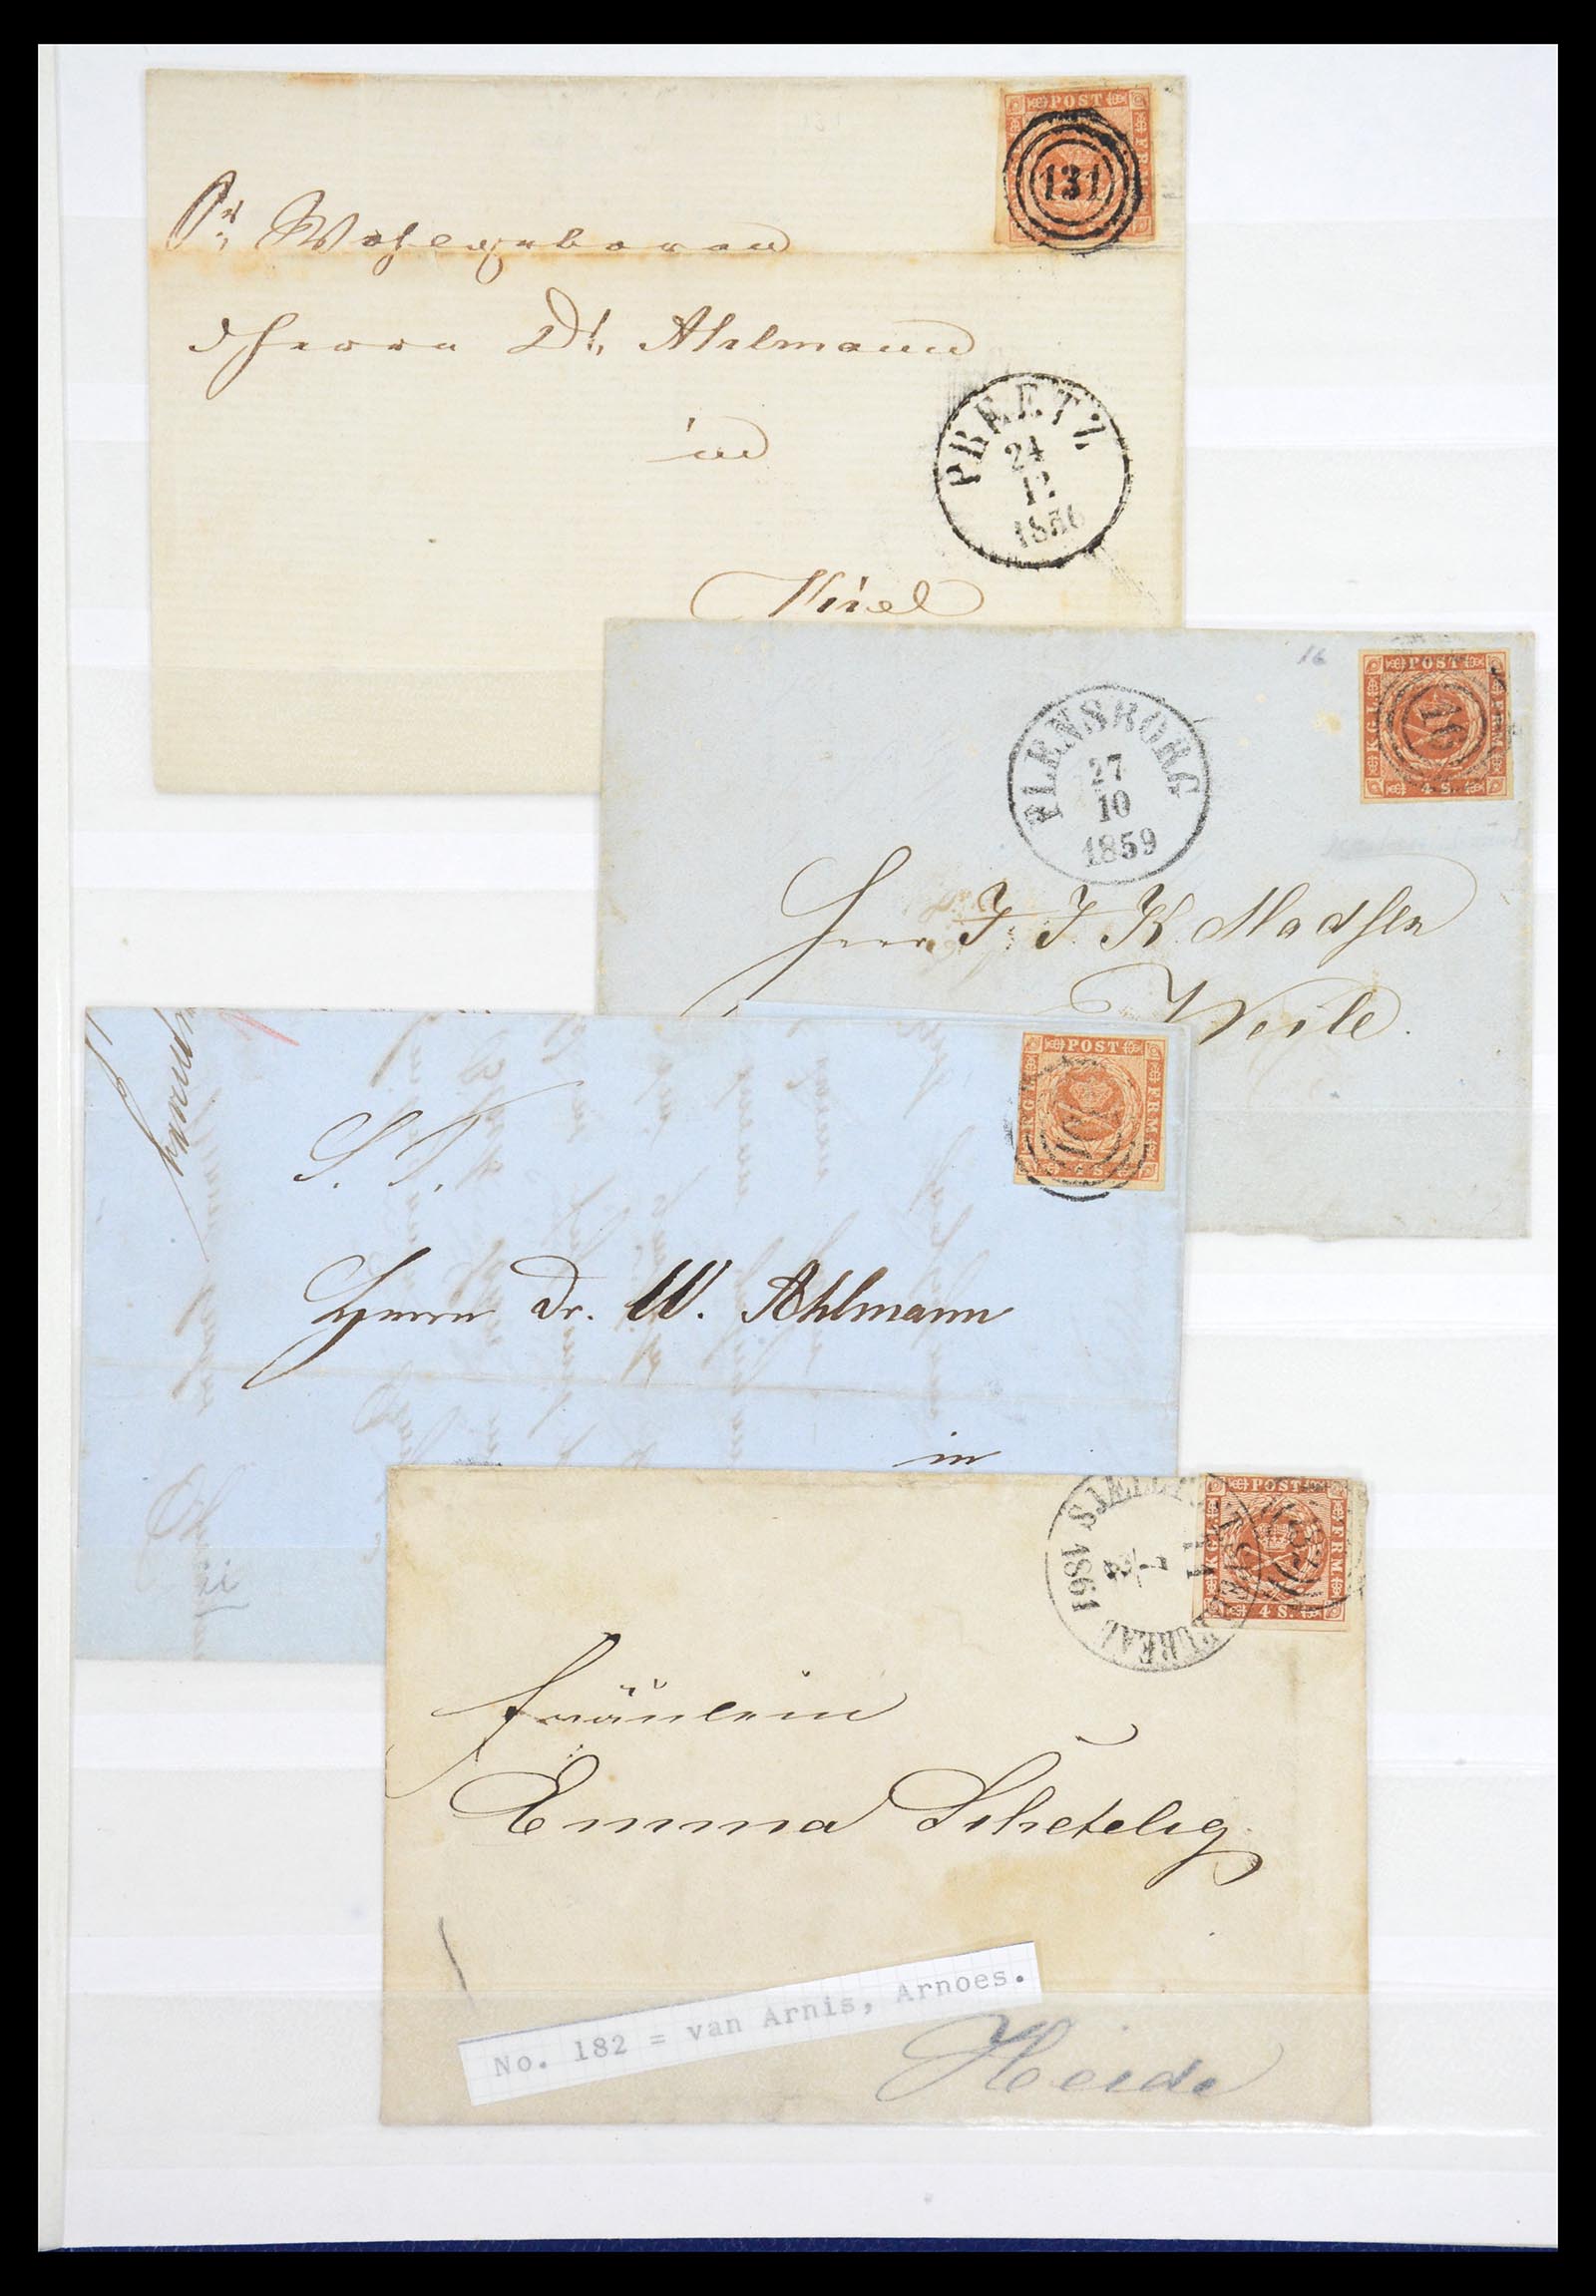 POST
131
Sr. Wohlgeboren
Herrn Dr. Ahlmann
in
PREETZ
24
12
1856
Kiel
16
POST
KGL
FRM
16
4 S.
FLENSBORG
27
10
1859
Herr J. J. K. Madsen
Weile.
POST
KGL
FRM
4 S.
S. T.
Herrn Dr. W. Ahlmann
in
POST
KGL
FRM
4 S.
1861
Fräulein
Emma Schetelig
No. 182 = van Arnis, Arnoes.
Heide